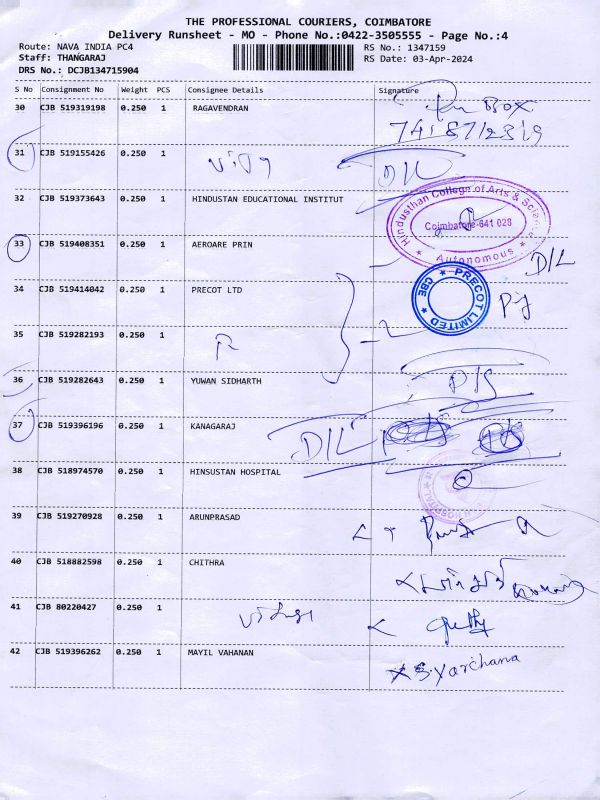 THE PROFESSIONAL COURIERS, COIMBATORE
Delivery Runsheet - MO - Phone No.:0422-3505555 - Page No.:4
Route: NAVA INDIA PC4
RS No.: 1347159
Staff: THANGARAJ
RS Date: 03-Apr-2024
DRS No.: DCJB134715904
S No Consignment No Weight PCS Consignee Details Signature
30 CJB 519319198 0.250 1 RAGAVENDRAN
Box
31 CJB 519155426 0.250 1 D/L
32 CJB 519373643 0.250 1 HINDUSTAN EDUCATIONAL INSTITUT
Hindusthan College of Arts & Science
Coimbatore-641 028
★ Autonomous ★
33 CJB 519408351 0.250 1 AEROARE PRIN D/L
34 CJB 519414042 0.250 1 PRECOT LTD
PRECOT LIMITED ★ CBE ★
35 CJB 519282193 0.250 1
36 CJB 519282643 0.250 1 YUWAN SIDHARTH
37 CJB 519396196 0.250 1 KANAGARAJ D/L
38 CJB 518974570 0.250 1 HINSUSTAN HOSPITAL
HOSPITAL
39 CJB 519270928 0.250 1 ARUNPRASAD
40 CJB 518882598 0.250 1 CHITHRA
41 CJB 80220427 0.250 1
42 CJB 519396262 0.250 1 MAYIL VAHANAN
S. Yarchana